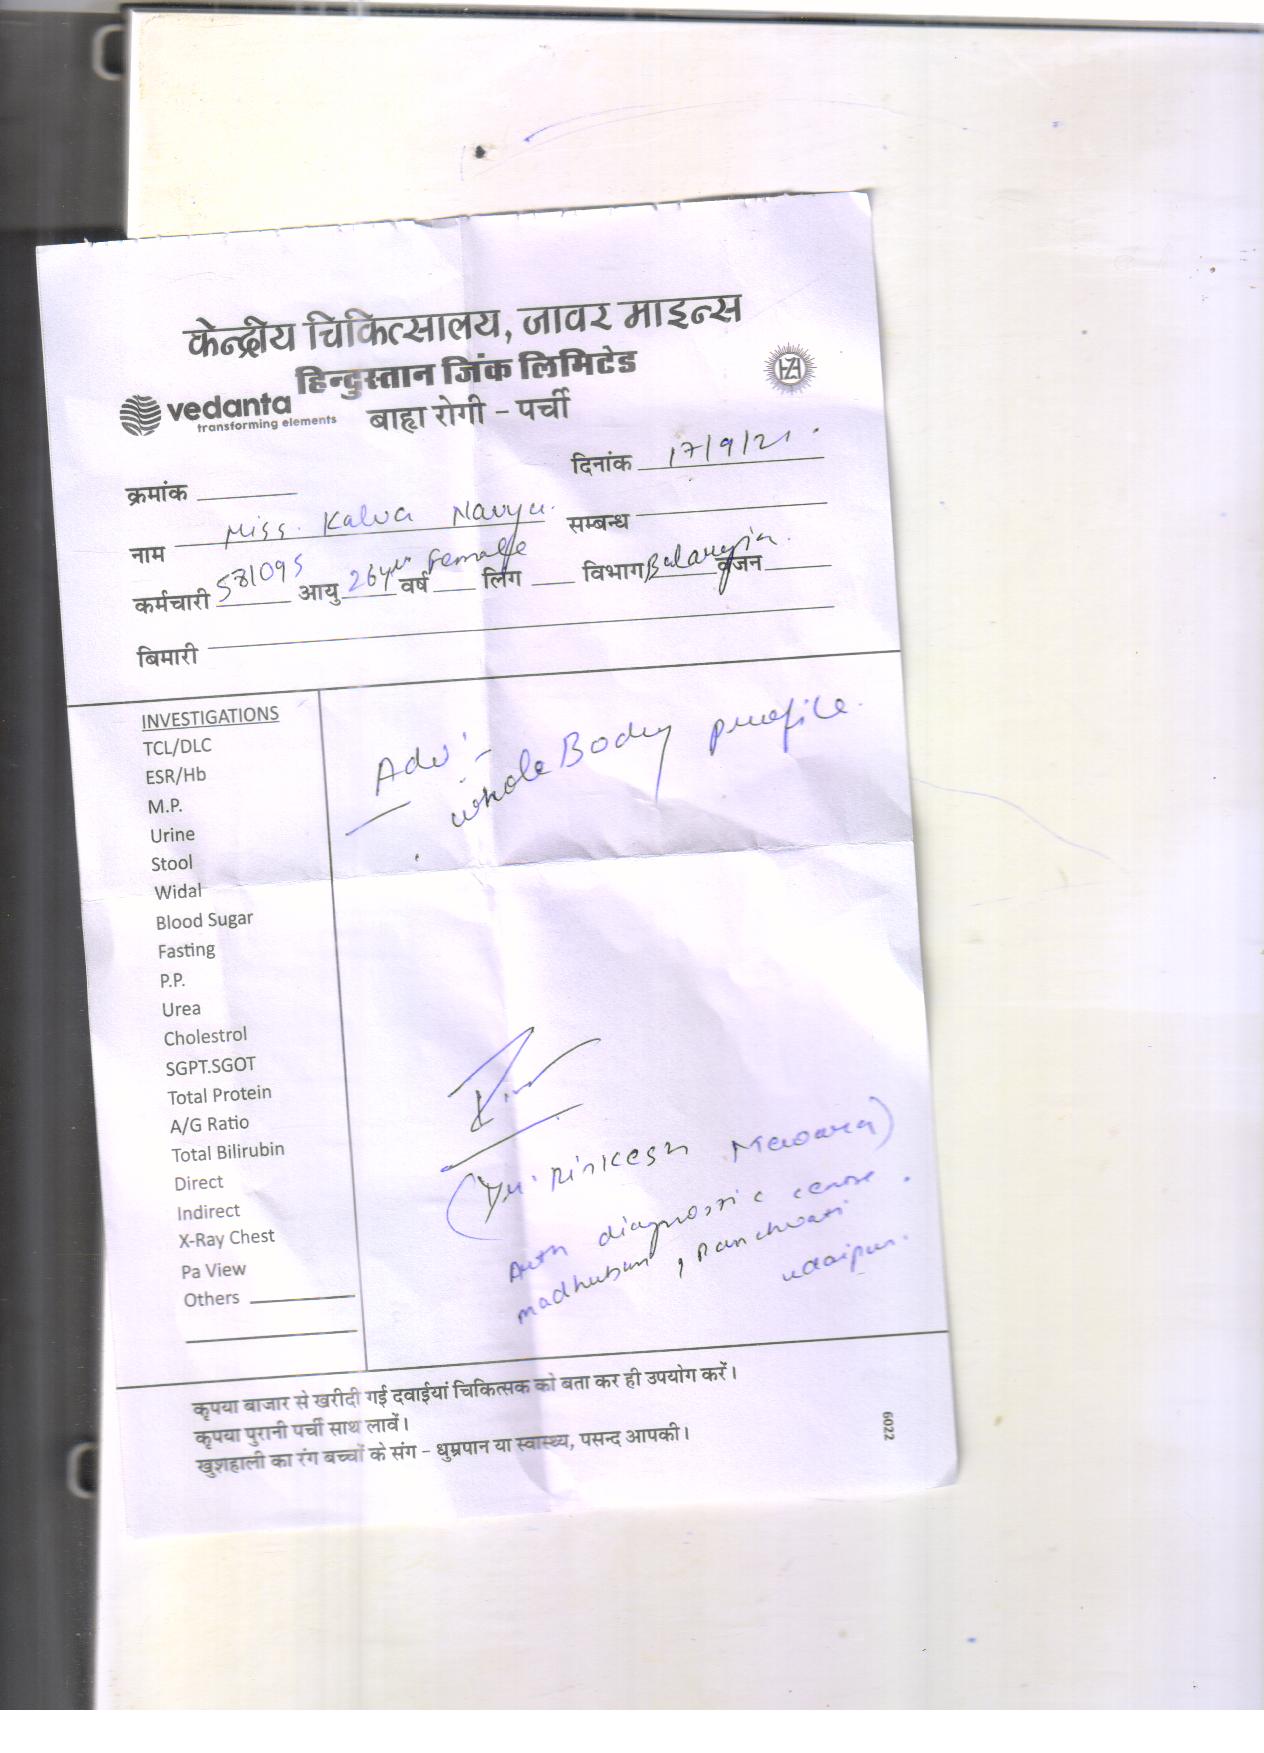 केन्द्रीय चिकित्सालय, जावर माइन्स
हिन्दुस्तान जिंक लिमिटेड
vedanta
transforming elements
HZL
बाह्य रोगी – पर्ची
दिनांक 17/9/21.
क्रमांक
नाम Miss. Kalva Navya. सम्बन्ध
कर्मचारी 581095 आयु 26yrs वर्ष Female लिंग विभाग वजन
बिमारी
INVESTIGATIONS
TCL/DLC
ESR/Hb
M.P.
Urine
Stool
Widal
Blood Sugar
Fasting
P.P.
Urea
Cholestrol
SGPT.SGOT
Total Protein
A/G Ratio
Total Bilirubin
Direct
Indirect
X-Ray Chest
Pa View
Others
Adv:-
whole Body profile.
(Dr. Rinkesh Mewara)
diagnostic centre
madhuban, panchwati
udaipur.
कृपया बाजार से खरीदी गई दवाईयां चिकित्सक को बता कर ही उपयोग करें।
कृपया पुरानी पर्ची साथ लावें।
खुशहाली का रंग बच्चों के संग – धुम्रपान या स्वास्थ्य, पसन्द आपकी।
6022